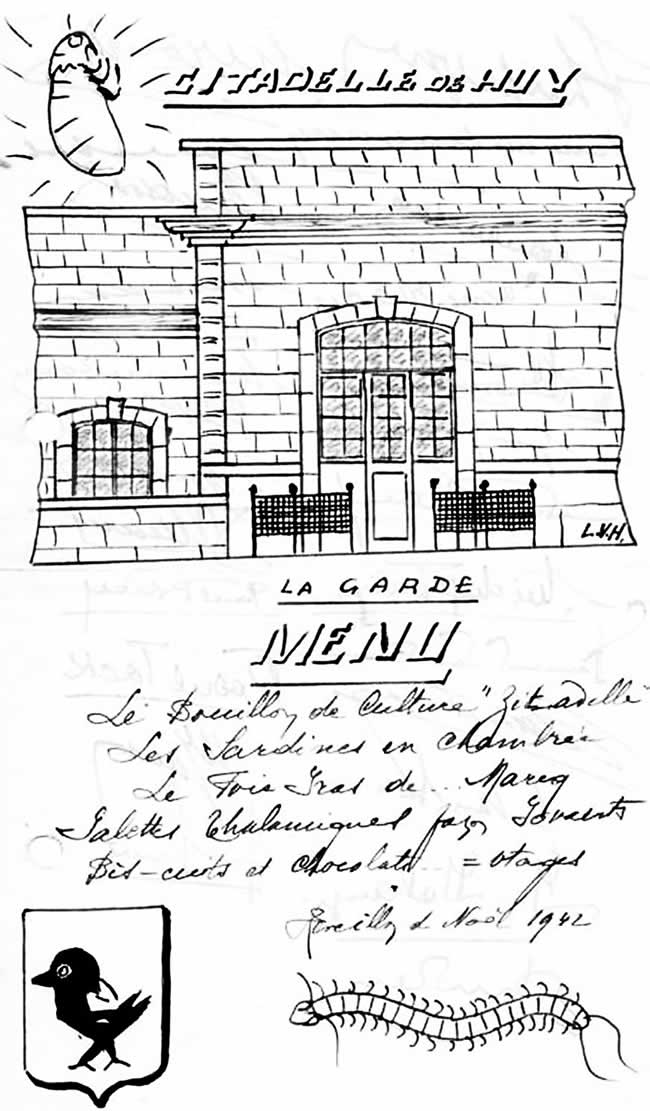 CITADELLE DE HUY
L.V.H.
LA GARDE
MENU
Le Bouillon de Culture "Zitadelle"
Les Sardines en Chambrée
Le Foie Gras de... Marcq
Galettes Thalamiques façon Govaerts
Bis-cuits et Chocolats... = otages
Réveillon d Noël 1942